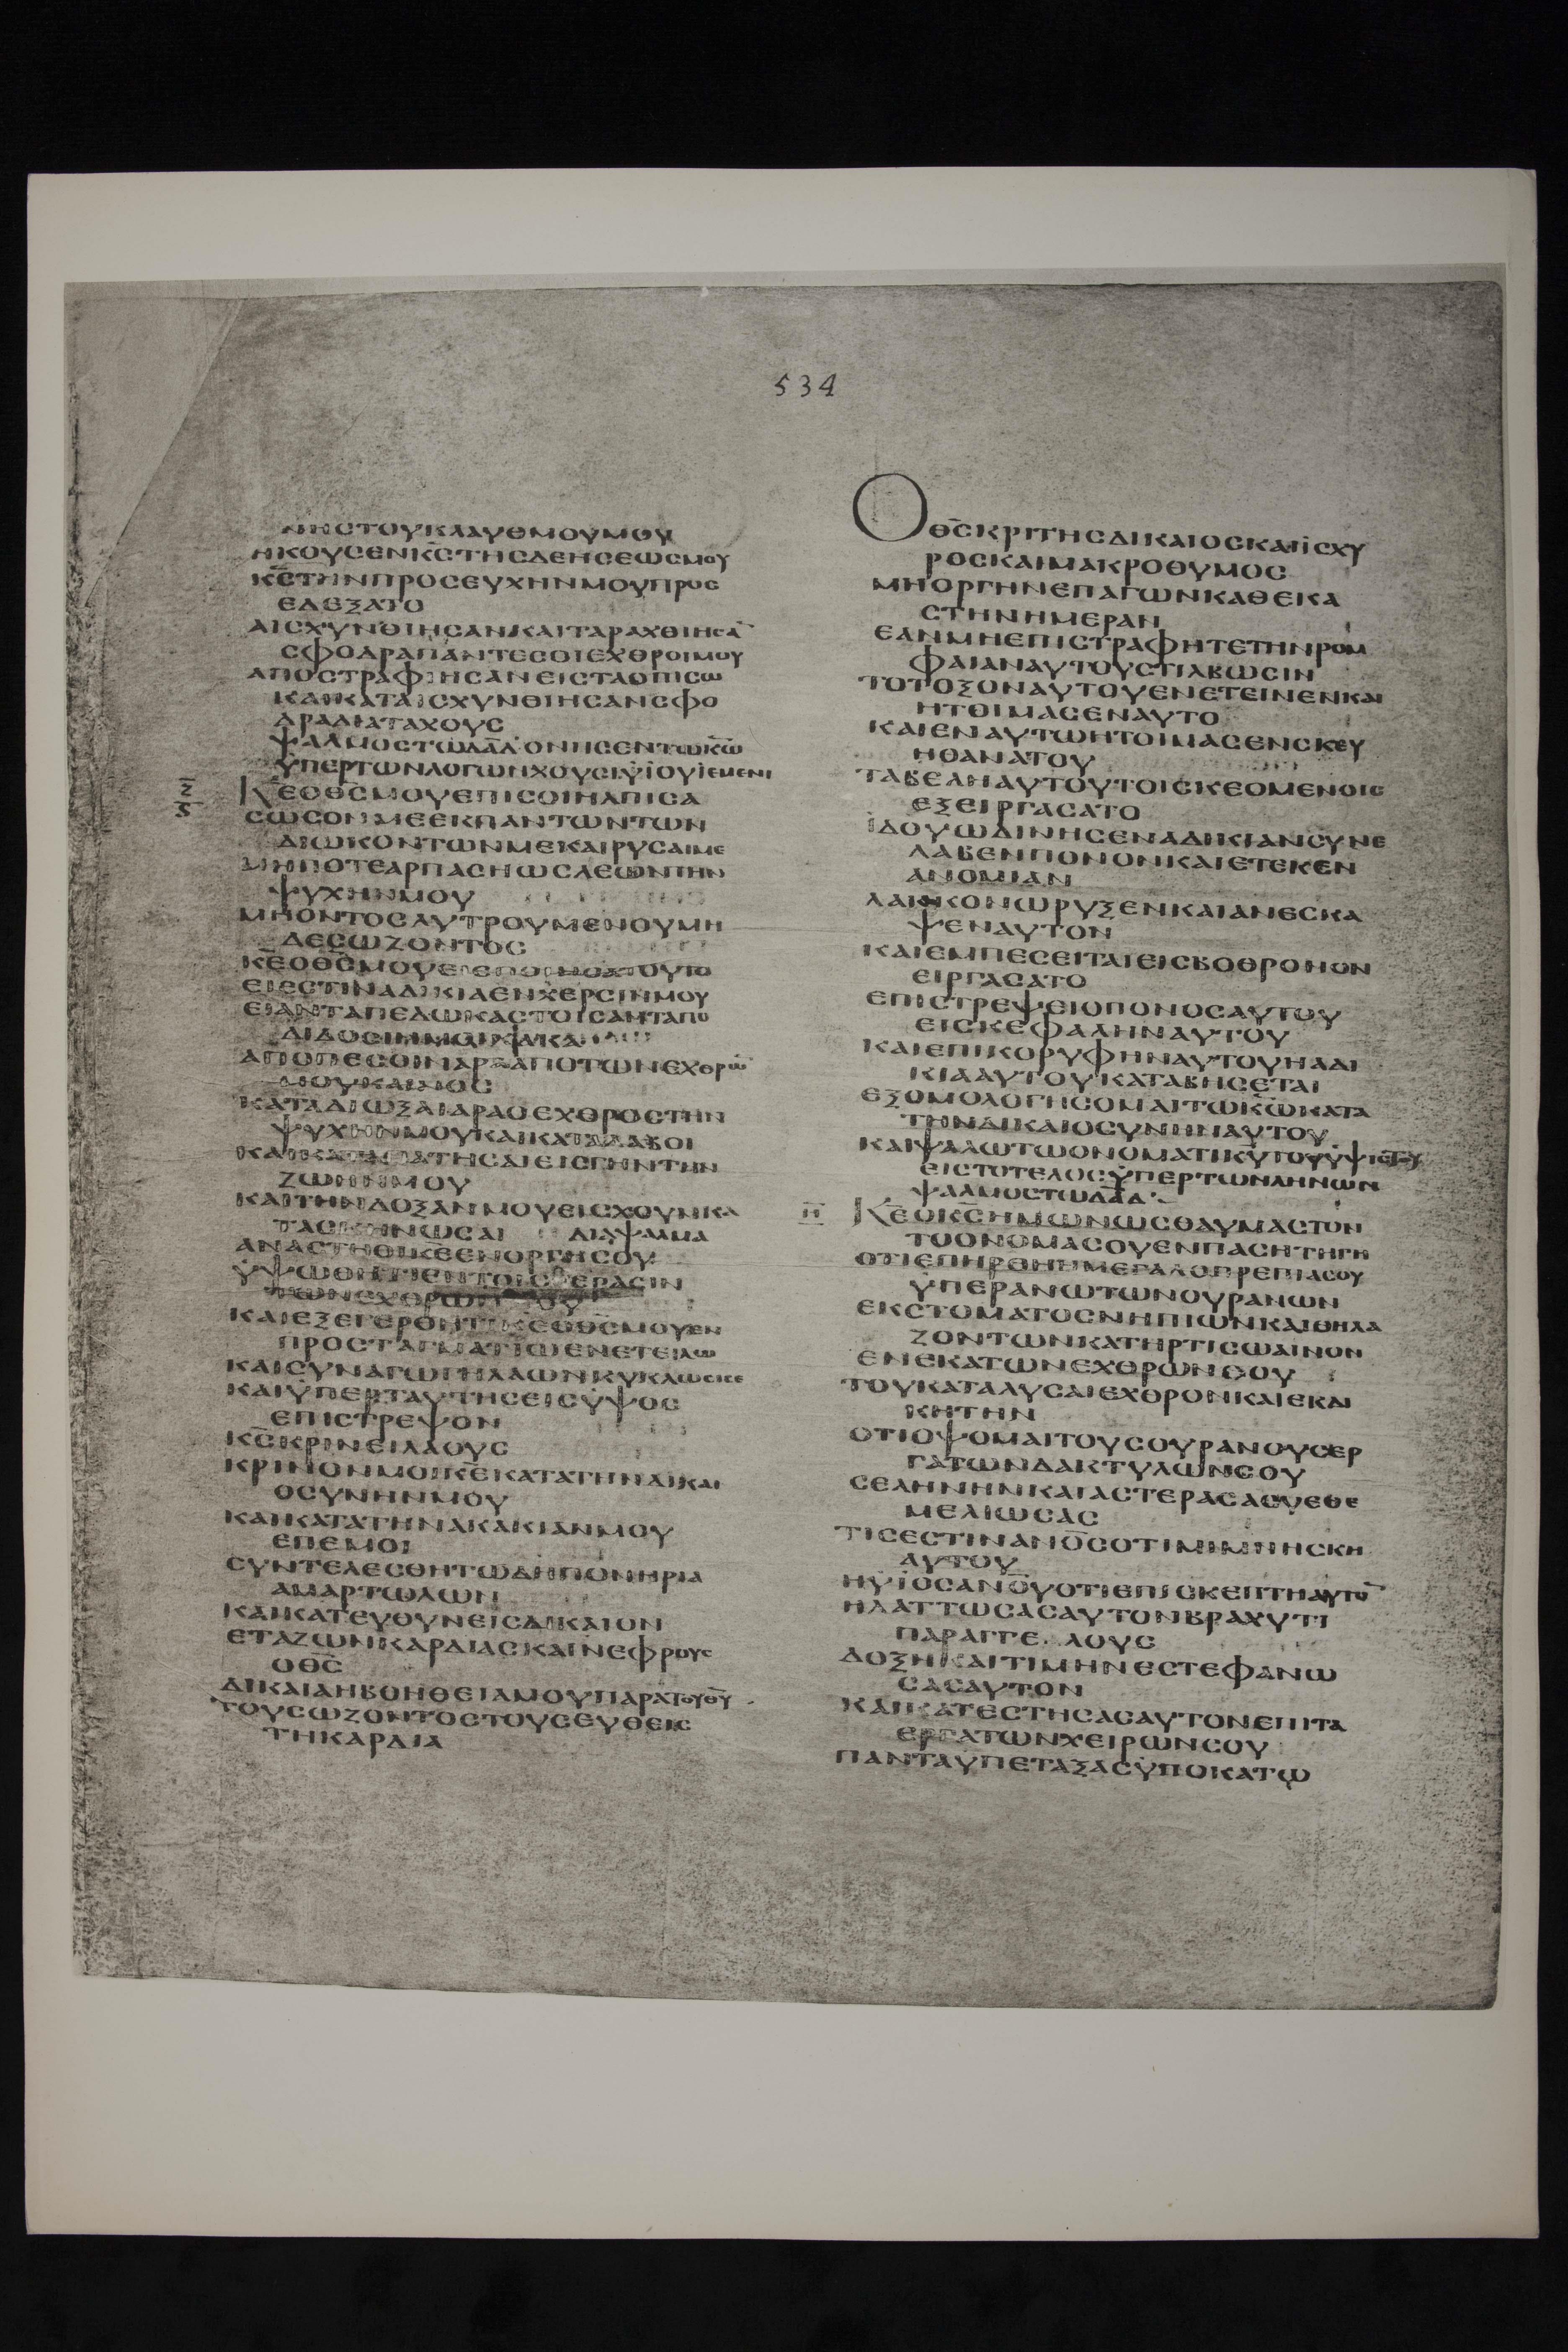 534
ΝΗСΤΟΥΚΛΑΥΘΜΟΥΜΟΥ
ΗΚΟΥСΕΝΚ̅С̅ΤΗСΔΕΗСΕΩСΜΟΥ
Κ̅С̅ΤΗΝΠΡΟСΕΥΧΗΝΜΟΥΠΡΟС
ΕΔΕΞΑΤΟ
ΑΙСΧΥΝΘΙΗСΑΝΚΑΙΤΑΡΑΧΘΙΗСΑ̅
СΦΟΔΡΑΠΑΝΤΕСΟΙΕΧΘΡΟΙΜΟΥ
ΑΠΟСΤΡΑΦΙΗСΑΝΕΙСΤΑΟΠΙСΩ
ΚΑΙΚΑΤΑΙСΧΥΝΘΙΗСΑΝСΦΟ
ΔΡΑΔΙΑΤΑΧΟΥС
ΨΑΛΜΟСΤΩΔ̅Α̅Δ̅ΟΝΗСΕΝΤΩΚ̅Ω̅
ΥΠΕΡΤΩΝΛΟΓΩΝΧΟΥСΙΫΙΟΥΙΕΜΕΝΙ
Ζ
ΚΕΟΘ̅С̅ΜΟΥΕΠΙСΟΙΗΛΠΙСΑ
СΩСΟΝΜΕΕΚΠΑΝΤΩΝΤΩΝ
ΔΙΩΚΟΝΤΩΝΜΕΚΑΙΡΥСΑΙΜΕ
ΜΗΠΟΤΕΑΡΠΑСΗΩСΛΕΩΝΤΗΝ
ΨΥΧΗΝΜΟΥ
ΜΗΟΝΤΟСΛΥΤΡΟΥΜΕΝΟΥΜΗ
ΔΕСΩΖΟΝΤΟС
Κ̅Ε̅ΟΘ̅С̅ΜΟΥΕΙΕΠΟΙΗСΑΤΟΥΤΟ
ΕΙΕСΤΙΝΑΔΙΚΙΑΕΝΧΕΡСΙΝΜΟΥ
ΕΙΑΝΤΑΠΕΔΩΚΑСΤΟΙСΑΝΤΑΠΟ
ΔΙΔΟСΙΝΜΟΙΚΑΚΑ
ΑΠΟΠΕСΟΙΝΑΡΑΑΠΟΤΩΝΕΧΘΡΩ̅
ΜΟΥΚΕΝΟС
ΚΑΤΑΔΙΩΞΑΙΑΡΑΟΕΧΘΡΟСΤΗΝ
ΨΥΧΗΝΜΟΥΚΑΙΚΑΤΑΛΑΒΟΙ
ΚΑΙΚΑΤΑΠΑΤΗСΑΙΕΙСΓΗΝΤΗΝ
ΖΩΗΝΜΟΥ
ΚΑΙΤΗΝΔΟΞΑΝΜΟΥΕΙСΧΟΥΝΚΑ
ΤΑСΚΗΝΩСΑΙ ΔΙΑΨΑΛΜΑ
ΑΝΑСΤΗΘΙΚ̅Ε̅ΕΝΟΡΓΗСΟΥ
ΫΨΩΘΗΤΙΕΝΤΟΙСΠΕΡΑСΙΝ
ΤΩΝΕΧΘΡΩΝΜΟΥ
ΚΑΙΕΞΕΓΕΡΘΗΤΙΚ̅Ε̅ΟΘ̅С̅ΜΟΥΕΝ
ΠΡΟСΤΑΓΜΑΤΙΩΕΝΕΤΕΙΛΩ
ΚΑΙСΥΝΑΓΩΓΗΛΑΩΝΚΥΚΛΩСΕΙСΕ
ΚΑΙΫΠΕΡΤΑΥΤΗСΕΙСΫΨΟС
ΕΠΙСΤΡΕΨΟΝ
Κ̅С̅ΚΡΙΝΕΙΛΑΟΥС
ΚΡΙΝΟΝΜΟΙΚ̅Ε̅ΚΑΤΑΤΗΝΔΙΚΑΙ
ΟСΥΝΗΝΜΟΥ
ΚΑΙΚΑΤΑΤΗΝΑΚΑΚΙΑΝΜΟΥ
ΕΠΕΜΟΙ
СΥΝΤΕΛΕСΘΗΤΩΔΗΠΟΝΗΡΙΑ
ΑΜΑΡΤΩΛΩΝ
ΚΑΙΚΑΤΕΥΘΥΝΕΙСΔΙΚΑΙΟΝ
ΕΤΑΖΩΝΚΑΡΔΙΑСΚΑΙΝΕΦΡΟΥС
ΟΘ̅С̅
ΔΙΚΑΙΑΗΒΟΗΘΕΙΑΜΟΥΠΑΡΑΤΟΥΘ̅Υ̅
ΤΟΥСΩΖΟΝΤΟСΤΟΥСΕΥΘΕΙС
ΤΗΚΑΡΔΙΑ
ΟΘ̅С̅ΚΡΙΤΗСΔΙΚΑΙΟСΚΑΙΪСΧΥ
ΡΟСΚΑΙΜΑΚΡΟΘΥΜΟС
ΜΗΟΡΓΗΝΕΠΑΓΩΝΚΑΘΕΚΑ
СΤΗΝΗΜΕΡΑΝ
ΕΑΝΜΗΕΠΙСΤΡΑΦΗΤΕΤΗΝΡΟΜ
ΦΑΙΑΝΑΥΤΟΥСΤΙΛΒΩСΙΝ
ΤΟΤΟΞΟΝΑΥΤΟΥΕΝΕΤΕΙΝΕΝΚΑΙ
ΗΤΟΙΜΑСΕΝΑΥΤΟ
ΚΑΙΕΝΑΥΤΩΗΤΟΙΜΑСΕΝСΚΕΥ
ΗΘΑΝΑΤΟΥ
ΤΑΒΕΛΗΑΥΤΟΥΤΟΙСΚΕΟΜΕΝΟΙС
ΕΞΕΙΡΓΑСΑΤΟ
ΙΔΟΥΩΔΙΝΗСΕΝΑΔΙΚΙΑΝСΥΝΕ
ΛΑΒΕΝΠΟΝΟΝΚΑΙΕΤΕΚΕΝ
ΑΝΟΜΙΑΝ
ΛΑΚΚΟΝΩΡΥΞΕΝΚΑΙΑΝΕСΚΑ
ΨΕΝΑΥΤΟΝ
ΚΑΙΕΜΠΕСΕΙΤΑΙΕΙСΒΟΘΡΟΝΟΝ
ΕΙΡΓΑСΑΤΟ
ΕΠΙСΤΡΕΨΕΙΟΠΟΝΟСΑΥΤΟΥ
ΕΙСΚΕΦΑΛΗΝΑΥΤΟΥ
ΚΑΙΕΠΙΚΟΡΥΦΗΝΑΥΤΟΥΗΑΔΙ
ΚΙΑΑΥΤΟΥΚΑΤΑΒΗСΕΤΑΙ
ΕΞΟΜΟΛΟΓΗСΟΜΑΙΤΩΚ̅Ω̅ΚΑΤΑ
ΤΗΝΔΙΚΑΙΟСΥΝΗΝΑΥΤΟΥ
ΚΑΙΨΑΛΩΤΩΟΝΟΜΑΤΙΚ̅Υ̅ΤΟΥΫΨΙСΤΟΥ
ΕΙСΤΟΤΕΛΟСΫΠΕΡΤΩΝΛΗΝΩΝ
ΨΑΛΜΟСΤΩΔ̅Α̅Δ̅
Η
Κ̅Ε̅ΟΚ̅С̅ΗΜΩΝΩСΘΑΥΜΑСΤΟΝ
ΤΟΟΝΟΜΑСΟΥΕΝΠΑСΗΤΗΓΗ
ΟΤΙΕΠΗΡΘΗΗΜΕΓΑΛΟΠΡΕΠΙΑСΟΥ
ΫΠΕΡΑΝΩΤΩΝΟΥΡΑΝΩΝ
ΕΚСΤΟΜΑΤΟСΝΗΠΙΩΝΚΑΙΘΗΛΑ
ΖΟΝΤΩΝΚΑΤΗΡΤΙСΩΑΙΝΟΝ
ΕΝΕΚΑΤΩΝΕΧΘΡΩΝСΟΥ
ΤΟΥΚΑΤΑΛΥСΑΙΕΧΘΡΟΝΚΑΙΕΚΔΙ
ΚΗΤΗΝ
ΟΤΙΟΨΟΜΑΙΤΟΥСΟΥΡΑΝΟΥСΕΡ
ΓΑΤΩΝΔΑΚΤΥΛΩΝСΟΥ
СΕΛΗΝΗΝΚΑΙΑСΤΕΡΑСΑСΥΕΘΕ
ΜΕΛΙΩСΑС
ΤΙСΕСΤΙΝΑΝ̅Ο̅С̅ΟΤΙΜΙΜΝΗСΚΗ
ΑΥΤΟΥ
ΗΫΙΟСΑΝ̅Ο̅Υ̅ΟΤΙΕΠΙСΚΕΠΤΗΑΥΤΟ̅
ΗΛΑΤΤΩСΑСΑΥΤΟΝΒΡΑΧΥΤΙ
ΠΑΡΑΓΓΕΛΟΥС
ΔΟΞΗΚΑΙΤΙΜΗΝΕСΤΕΦΑΝΩ
СΑСΑΥΤΟΝ
ΚΑΙΚΑΤΕСΤΗСΑСΑΥΤΟΝΕΠΙΤΑ
ΕΡΓΑΤΩΝΧΕΙΡΩΝСΟΥ
ΠΑΝΤΑΫΠΕΤΑΞΑСΫΠΟΚΑΤΩ